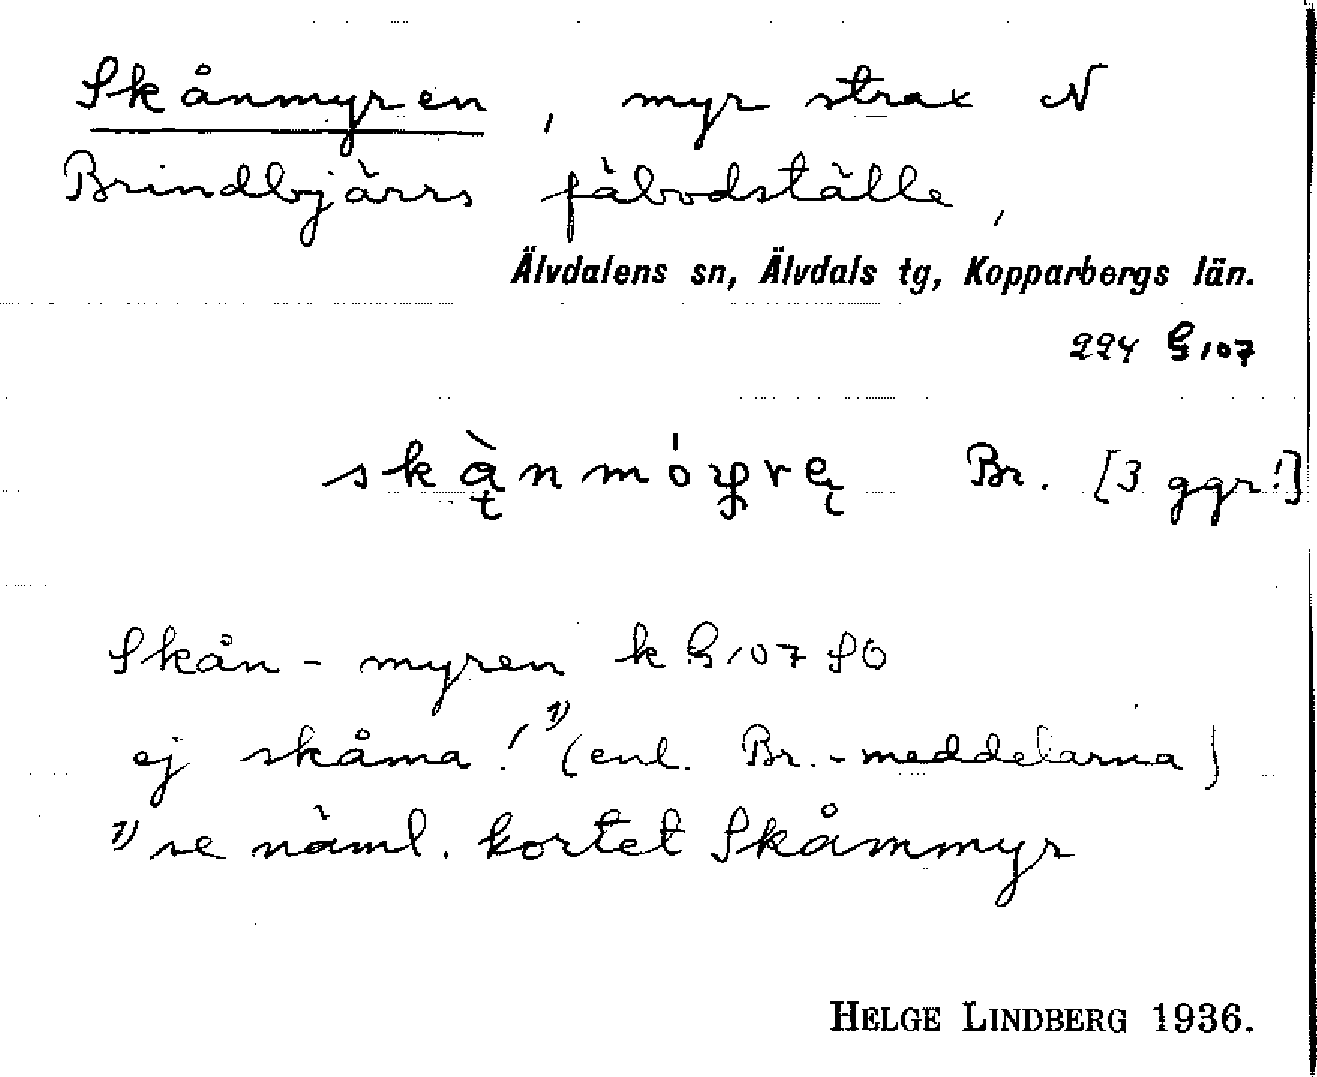 Skånmyren, myr strax N
Brindbjärrs fäbodställe,
Älvdalens sn, Älvdals tg, Kopparbergs län.
224 G 107
Br. [3 ggr!]
Skån-myren k G 107 SÖ
ej skåma! 1) (enl. Br.-meddelarna)
1) se näml. kortet Skåmmyr
HELGE LINDBERG 1936.